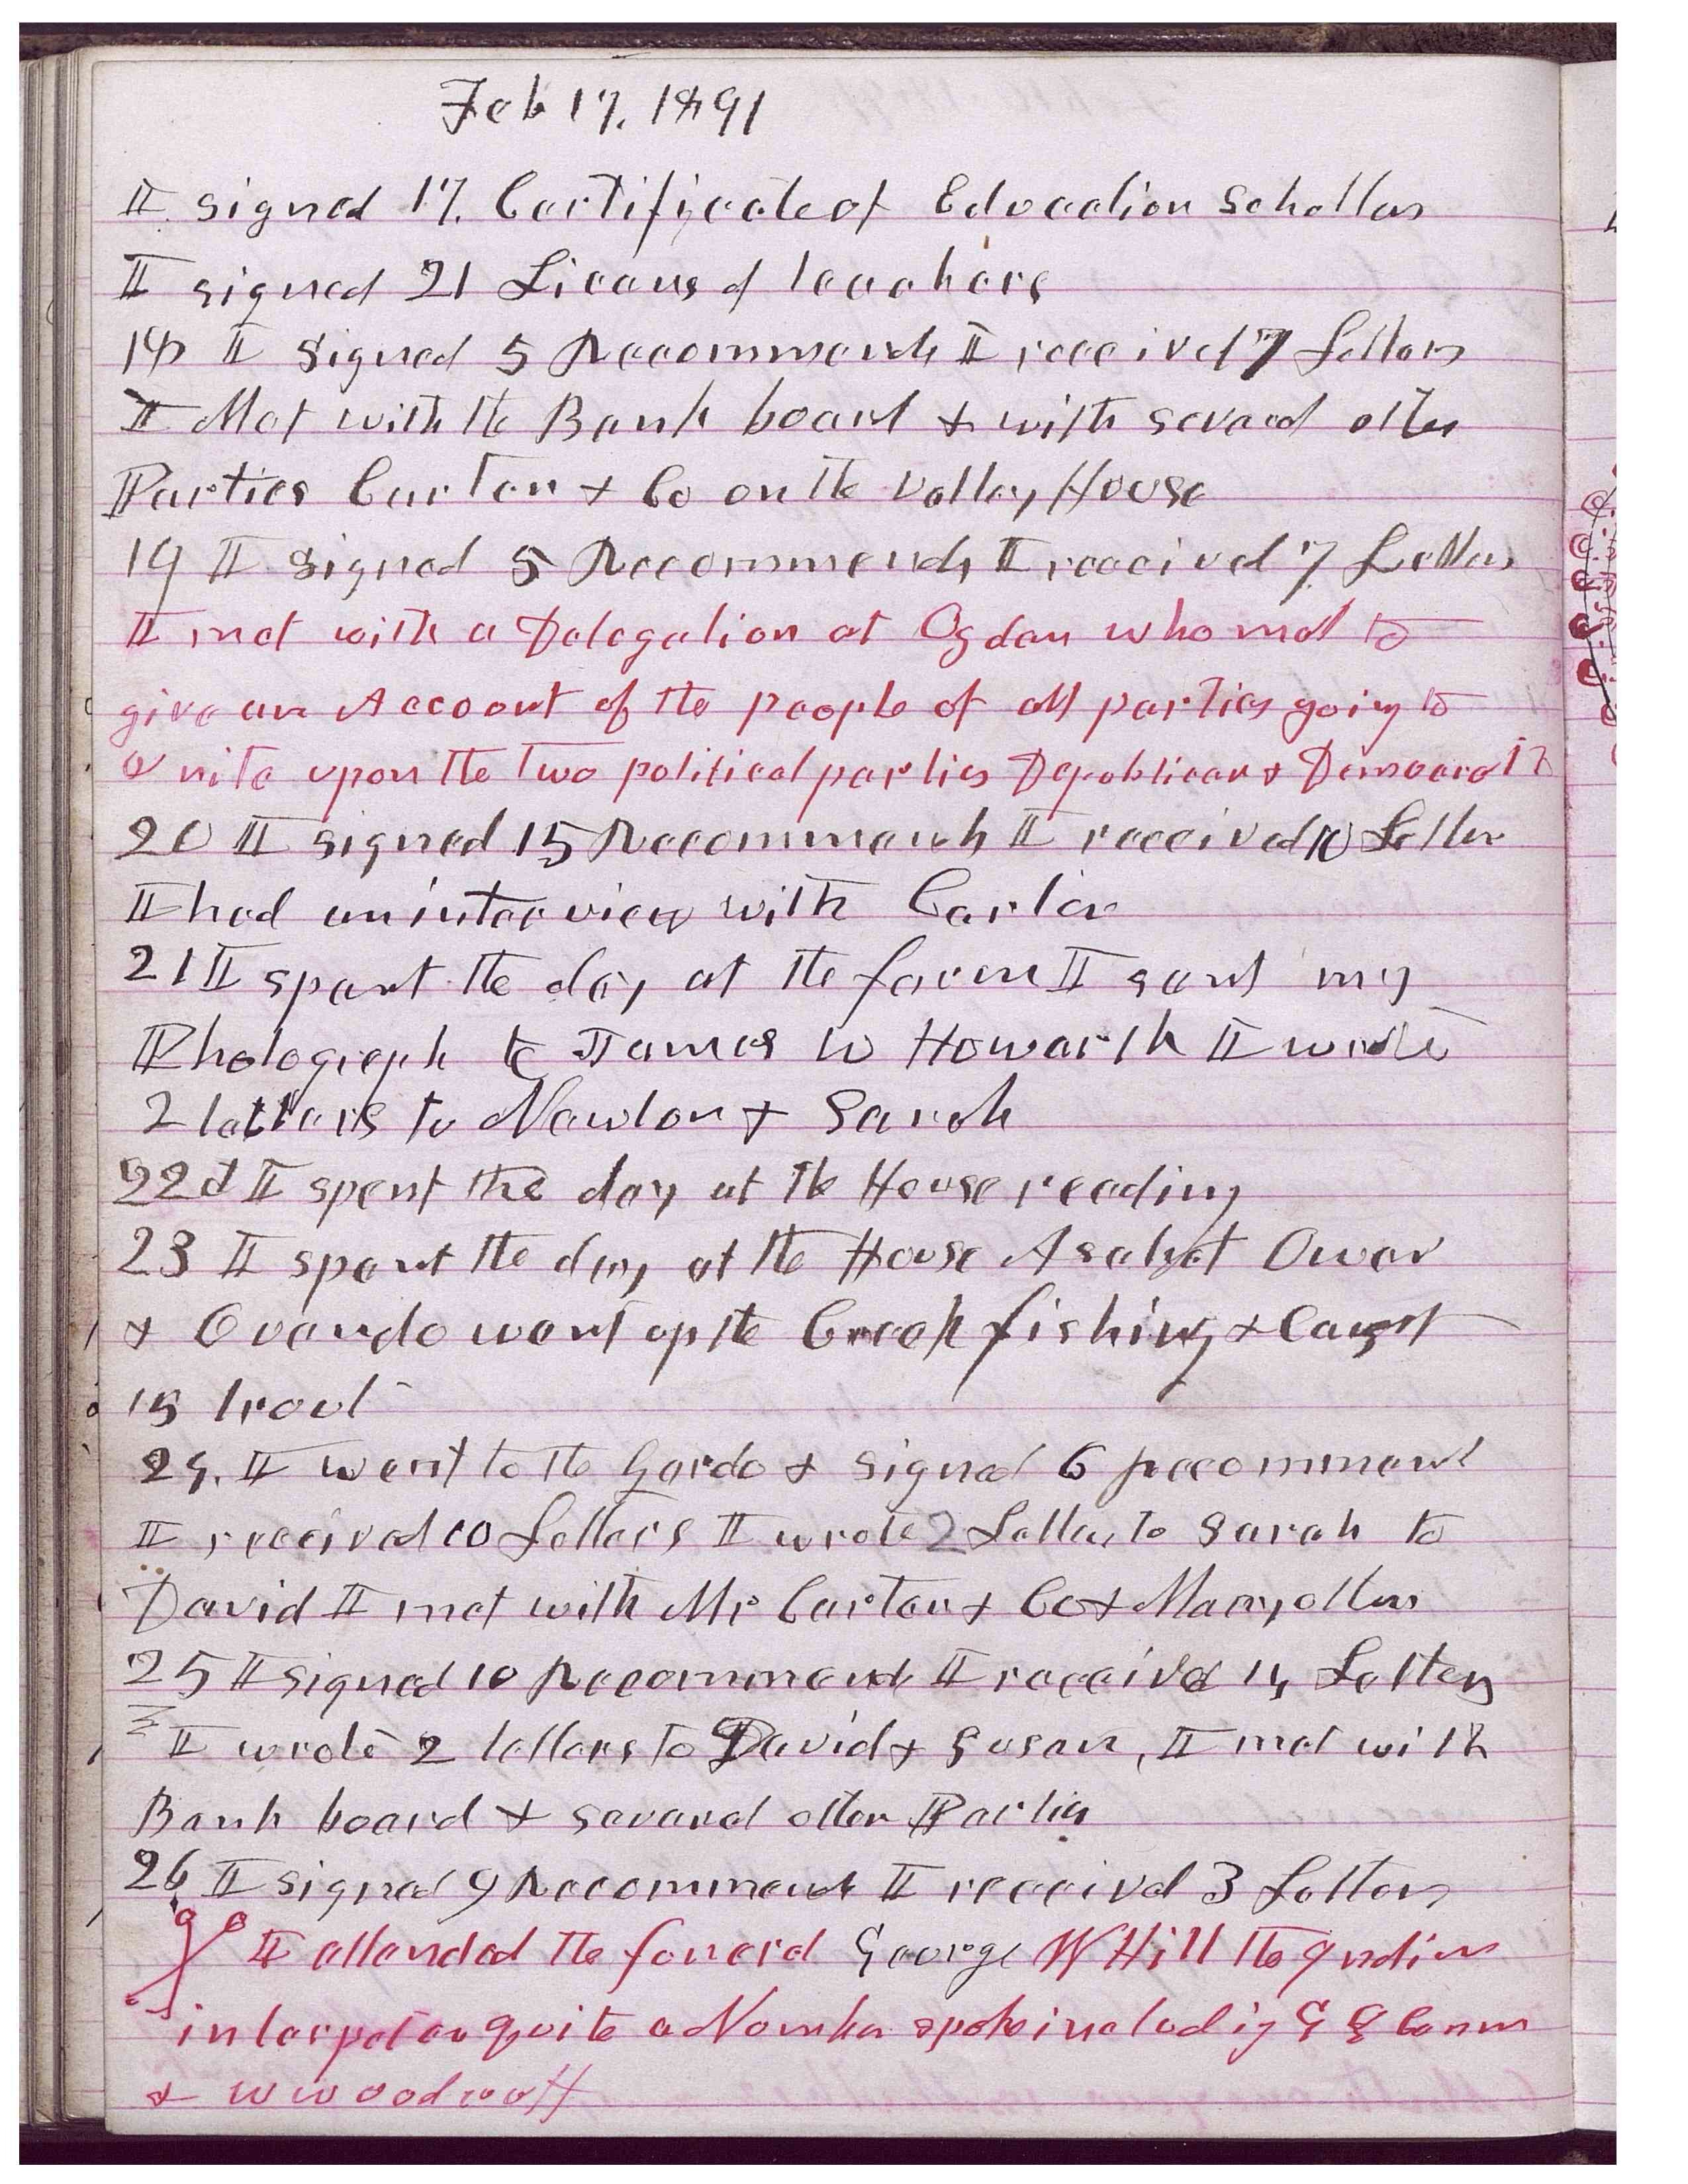 Feb 17, 1891
I signed 17 Certificate of Education Schollars
I signed 21 Licens of teachers
18 I signed 5 Recommends I received 7 Letters
I Met with the Bank board & with several other
Parties Carlton & Co on the Valley House
19 I signed 5 Recommends I received 7 Letters
I met with a Delegation at Ogden who met to
give an Account of the people of all parties going to
unite upon the Two political parties Republican & Democratic
20 I signed 15 Recommends I received 10 Letters
I had an interview with Carlton
21 I spent the day at the farm I sent my
Photograph to James W Howarth I wrote
2 letters to Newton & Sarah
22d I spent the day at the House reading
23 I spent the day at the House Asahel Owen
& Ovando went up the Creek fishing & Caught
15 trout
24. I went to the Gardo & signed 6 recommend
I received 10 Letters I wrote 2 Letters to Sarah to
David I met with Mr Carlton & Co & Many others
25 I signed 10 Recommend I received 14 Letters
I wrote 2 letters to David & Susan, I met with
Bank board & several other Parties
26 I signed 9 Recommend I received 3 Letters
I attended the funeral George W Hill the Indian
interpeter quite a Number spoke includig
& W Woodruff